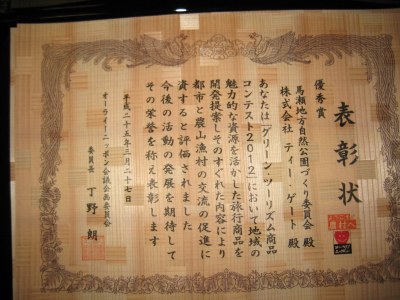 表彰状
優秀賞
馬瀬地方自然公園づくり委員会 殿
株式会社 ティー・ゲート 殿
あなたは「グリーン・ツーリズム商品
コンテスト2012」において地域の
魅力的な資源を活かした旅行商品を
開発提案しそのすぐれた内容により
都市と農山漁村の交流の促進に
資すると評価されました
今後の活動の発展を期待して
その栄誉を称え表彰します
平成二十五年二月二十七日
オーライ!ニッポン会議企画委員会
委員長 丁野 朗